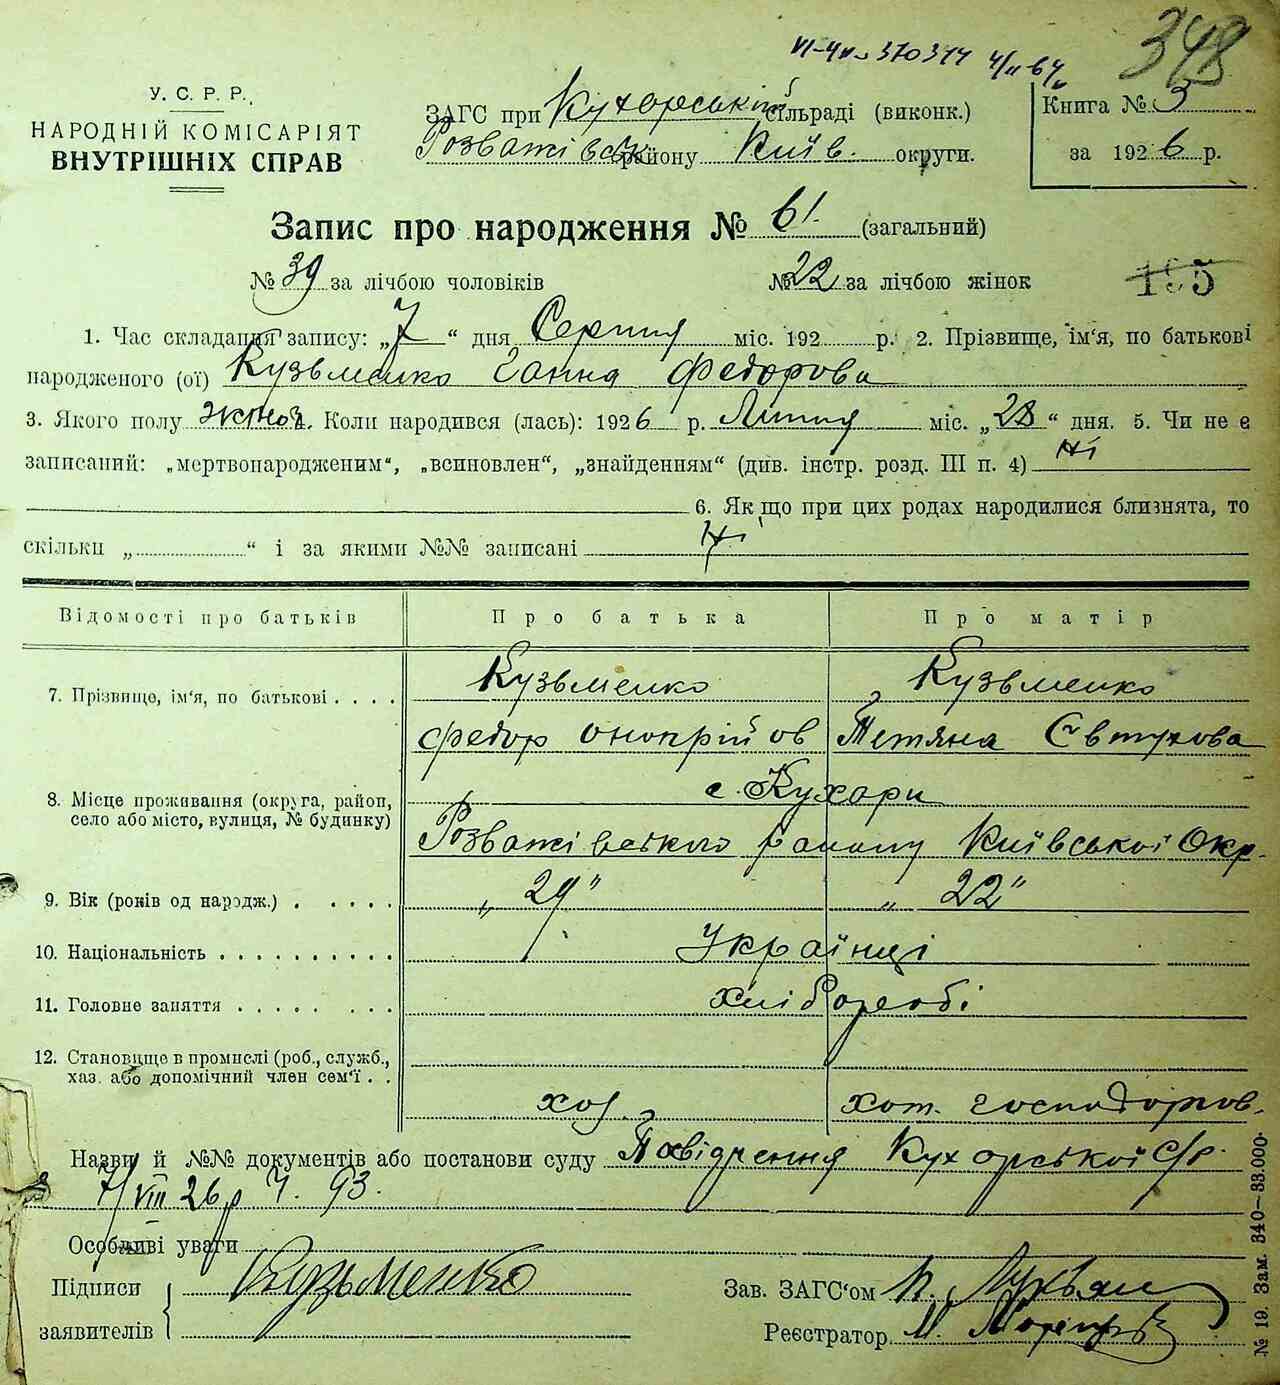 348
У. С. Р. Р.
НАРОДНІЙ КОМІСАРІЯТ
ВНУТРІШНІХ СПРАВ
ЗАГС при Кухарській сільраді (виконк.)
Розважівськ району Київ. округи.
Книга № 3
за 1926 р.
Запис про народження № 61. (загальний)
№ 39 за лічбою чоловіків № 22 за лічбою жінок
195
1. Час складання запису: „7“ дня Серпня міс. 192 р. 2. Прізвище, ім‘я, по батькові
народженого (ої) Кузьменко Ганна Федорова
3. Якого полу жіноч. Коли народився (лась): 1926 р. Липня міс. „28“ дня. 5. Чи не є
записаний: „мертвонародженим“, „всиновлен“, „знайденням“ (див. інстр. розд. III п. 4) Ні
6. Як що при цих родах народилися близнята, то
скільки „ “ і за якими №№ записані Ні
Відомості про батьків Про батька Про матір
7. Прізвище, ім‘я, по батькові . . . . Кузьменко Кузьменко
Федор Онопрійов Тетяна Євтухова
8. Місце проживання (округа, район,
село або місто, вулиця, № будинку)
с. Кухари
Розважівського району Київської Окр.
9. Вік (років од народж.) . . . . . „29“ „22“
10. Національність . . . . . . . . . . Українці
11. Головне заняття . . . . . . . . Хлібороби
12. Становище в промислі (роб., служб.,
хаз. або допомічний член сем‘ї . .
хоз. хат. господарюв.
Назви й №№ документів або постанови суду Посвідчення Кухарської С/р.
7/VIII 26р Ч. 93.
Особливі уваги
Підписи
заявителів
Кузьменко
Зав. ЗАГС‘ом
Реєстратор М.
№ 19. Зам. 340—33.000.